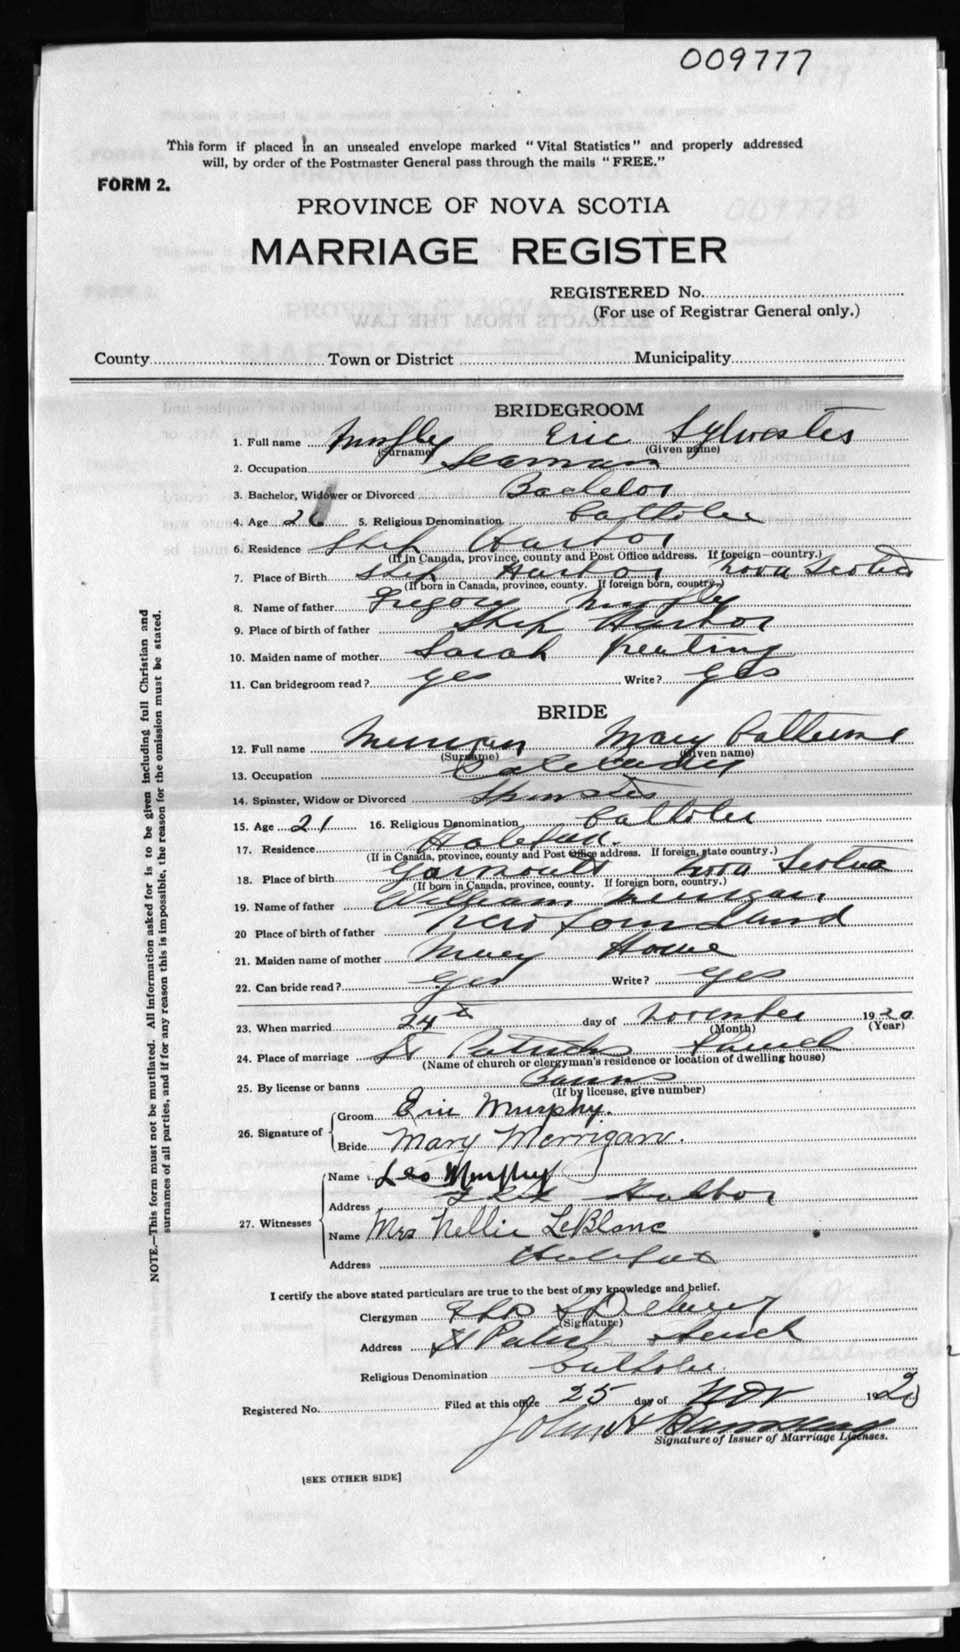 009777
This form if placed in an unsealed envelope marked "Vital Statistics" and properly addressed
will, by order of the Postmaster General pass through the mails "FREE."
FORM 2.
PROVINCE OF NOVA SCOTIA
MARRIAGE REGISTER
REGISTERED No.
(For use of Registrar General only.)
County Town or District Municipality
BRIDEGROOM
1. Full name Murphy Eric Sylvester
(Surname) (Given name)
2. Occupation Seaman
3. Bachelor, Widower or Divorced Bachelor
4. Age 5. Religious Denomination Catholic
6. Residence Ship Harbor
(If in Canada, province, county and Post Office address. If foreign—country.)
7. Place of Birth Ship Harbor Nova Scotia
(If born in Canada, province, county. If foreign born, country.)
8. Name of father Gregory Murphy
9. Place of birth of father Ship Harbor
10. Maiden name of mother Sarah Keating
11. Can bridegroom read? yes Write? yes
BRIDE
12. Full name Merrigan Mary Catherine
(Surname) (Given name)
13. Occupation
14. Spinster, Widow or Divorced Spinster
15. Age 21 16. Religious Denomination Catholic
17. Residence Halifax.
(If in Canada, province, county and Post Office address. If foreign, state country.)
18. Place of birth Yarmouth Nova Scotia
(If born in Canada, province, county. If foreign born, country.)
19. Name of father William Merrigan
20 Place of birth of father New Foundland
21. Maiden name of mother Mary Howe
22. Can bride read? yes Write? yes
23. When married 24th day of November 1920
(Month) (Year)
24. Place of marriage St Patricks Church
(Name of church or clergyman's residence or location of dwelling house)
25. By license or banns Banns
(If by license, give number)
26. Signature of Groom Eric Murphy.
Bride Mary Merrigan.
27. Witnesses Name Leo Murphy
Address Ship Harbor
Name Mrs Nellie LeBlanc
Address Halifax
I certify the above stated particulars are true to the best of my knowledge and belief.
Clergyman
(Signature)
Address St Patrick Church
Religious Denomination Catholic
Registered No. Filed at this office 25 day of Nov 1920
John H
Signature of Issuer of Marriage Licenses.
[SEE OTHER SIDE]
NOTE.—This form must not be mutilated. All information asked for is to be given including full Christian and
surnames of all parties, and if for any reason this is impossible, the reason for the omission must be stated.